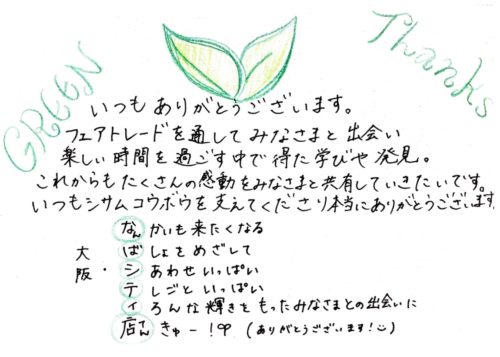 GREEN
Thanks
いつもありがとうございます。
フェアトレードを通してみなさまと出会い
楽しい時間を過ごす中で得た学びや発見。
これからもたくさんの感動をみなさまと共有していきたいです。
いつもシサムコウボウを支えてくださり本当にありがとうございます
大阪・
なんかいも来たくなる
ばしょをめざして
シあわせいっぱい
テしごといっぱい
ィろんな輝きをもったみなさまとの出会いに
店さんきゅー!♡ (ありがとうございます!☺)